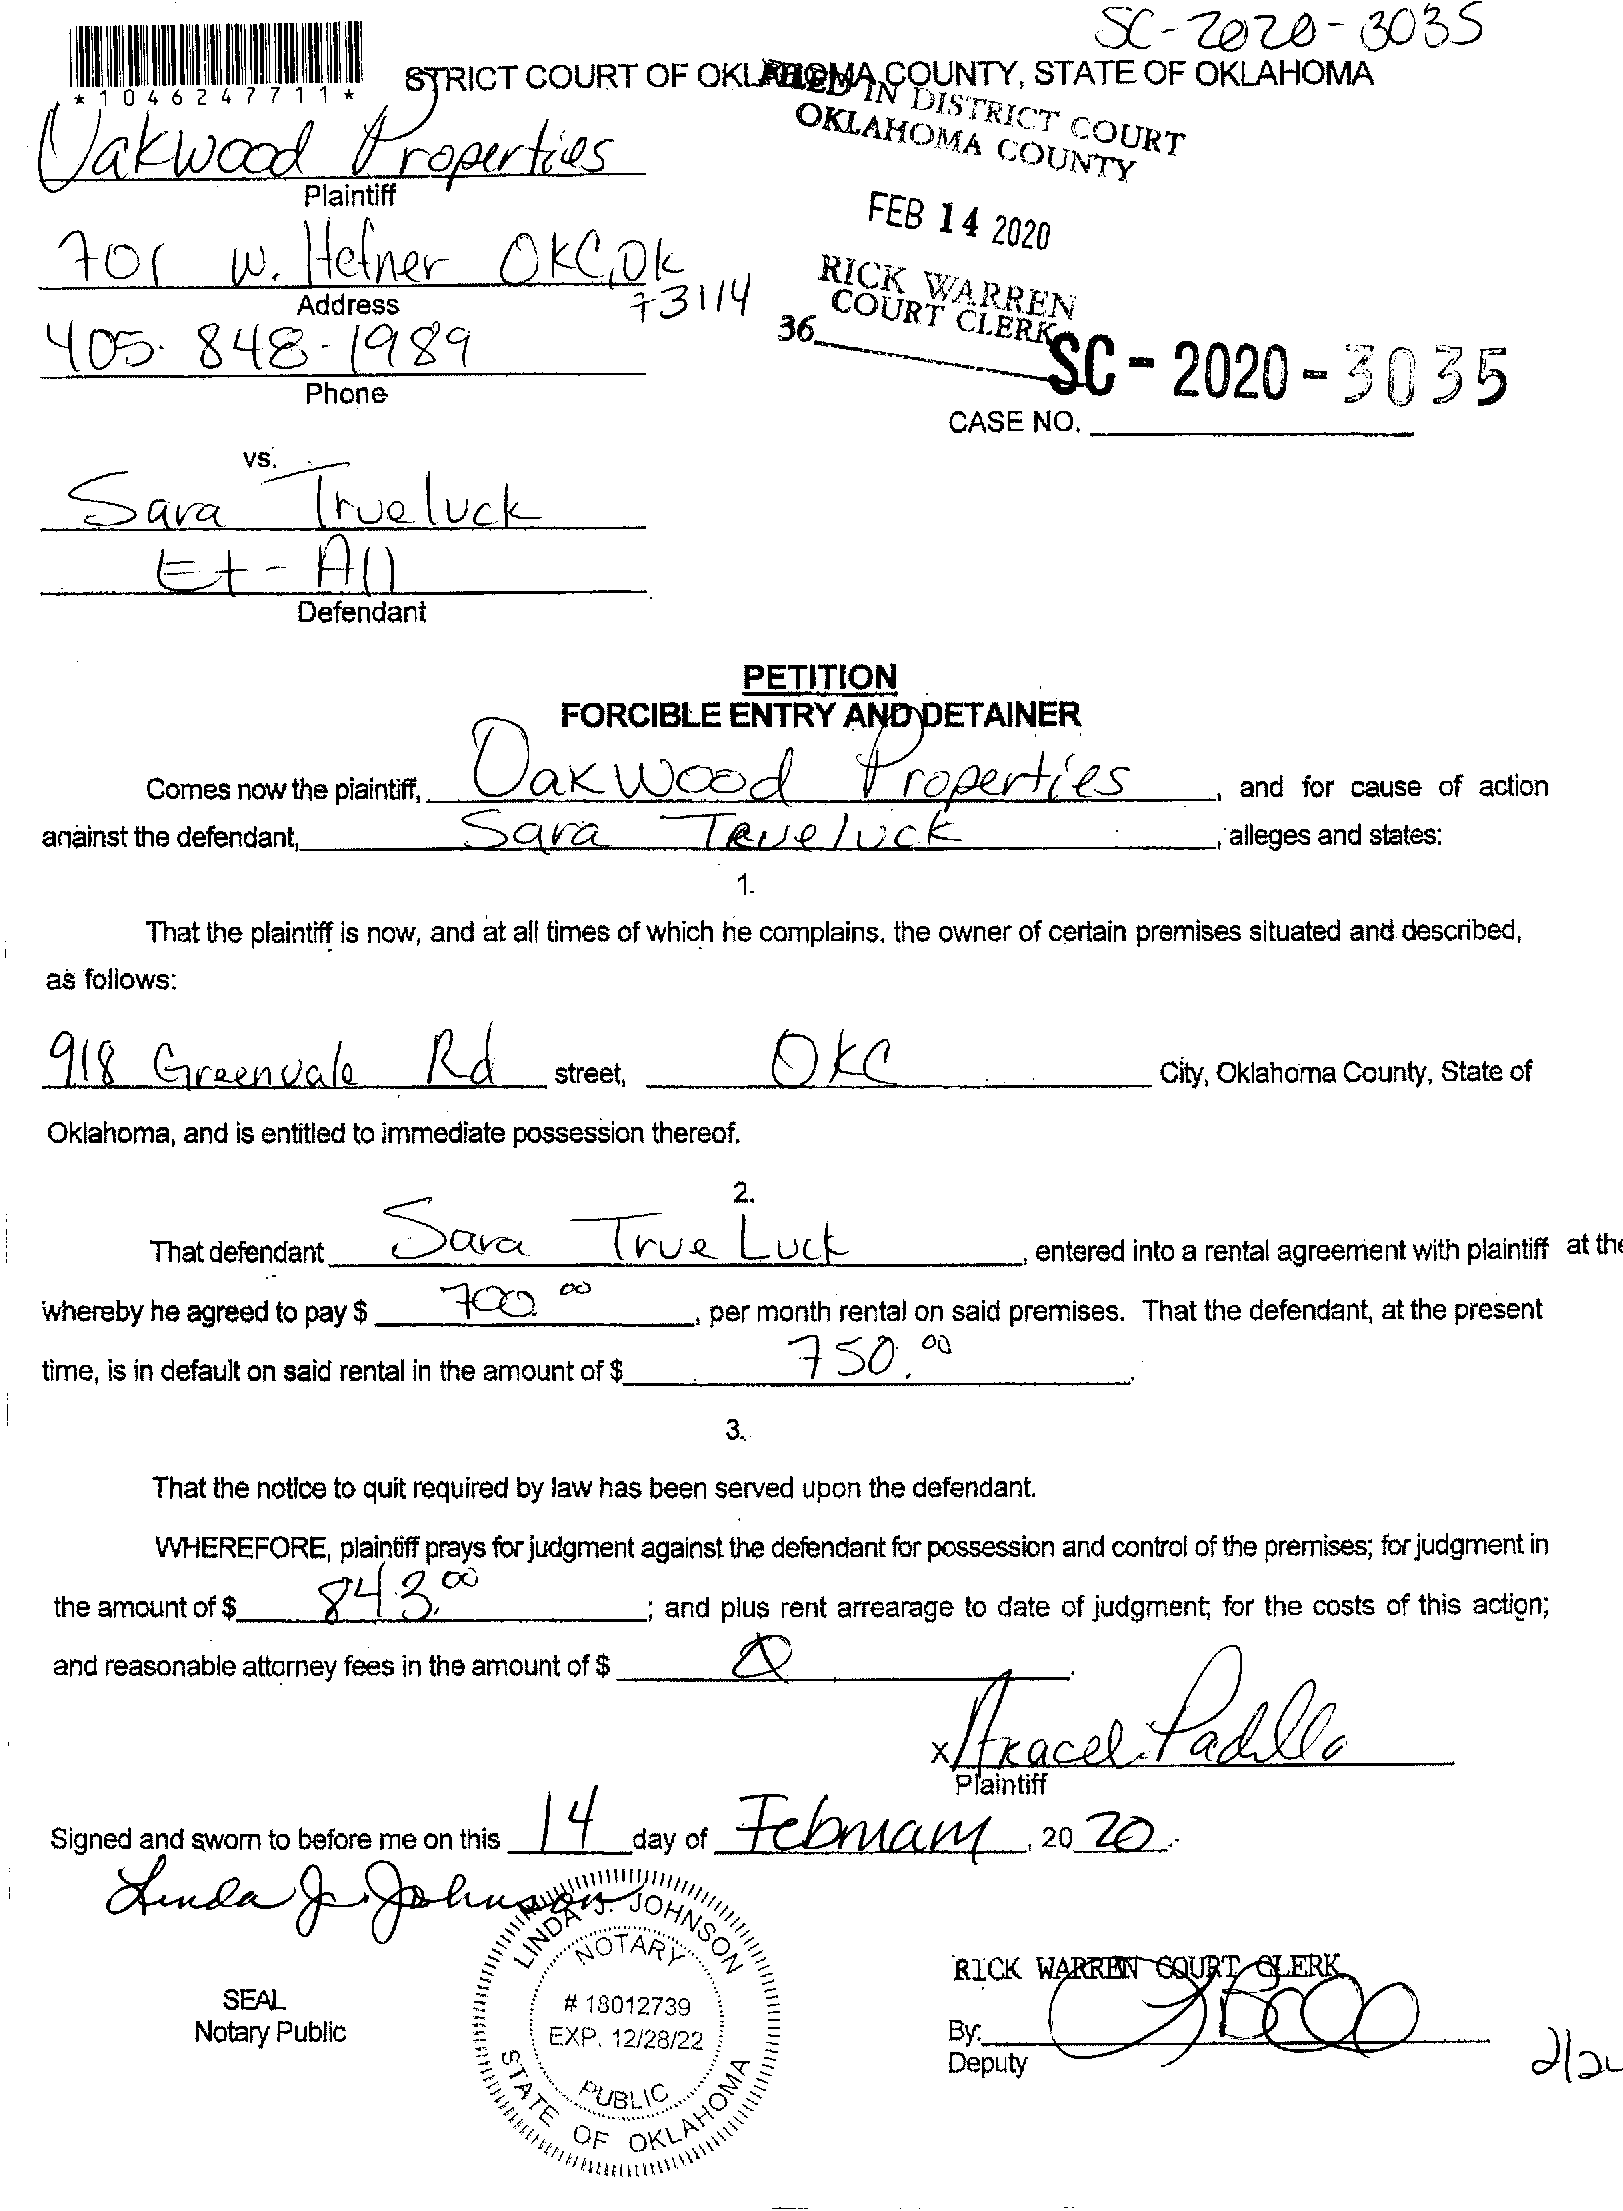 SC-2020-3035
STRICT COURT OF OKLAHOMA COUNTY, STATE OF OKLAHOMA
*1046247711*
FILED IN DISTRICT COURT
OKLAHOMA COUNTY
Oakwood Properties
Plaintiff
FEB 14 2020
701 W. Hefner OKC, OK
73114
Address
RICK WARREN
COURT CLERK
36
405-848-1989
Phone
SC-2020-3035
CASE NO.
vs.
Sara Trueluck
Et-All
Defendant
PETITION
FORCIBLE ENTRY AND DETAINER
Comes now the plaintiff, Oakwood Properties, and for cause of action
against the defendant, Sara Trueluck, alleges and states:
1.
That the plaintiff is now, and at all times of which he complains, the owner of certain premises situated and described,
as follows:
918 Greenvale Rd street, OKC City, Oklahoma County, State of
Oklahoma, and is entitled to immediate possession thereof.
2.
That defendant Sara True Luck, entered into a rental agreement with plaintiff at the
whereby he agreed to pay $ 700.00, per month rental on said premises. That the defendant, at the present
time, is in default on said rental in the amount of $ 750.00.
3.
That the notice to quit required by law has been served upon the defendant.
WHEREFORE, plaintiff prays for judgment against the defendant for possession and control of the premises; for judgment in
the amount of $ 843.00; and plus rent arrearage to date of judgment; for the costs of this action;
and reasonable attorney fees in the amount of $ 0.
x Aracel Padilla
Plaintiff
Signed and sworn to before me on this 14 day of February, 2020.
Linda J. Johnson
LINDA J. JOHNSON
NOTARY
# 18012739
EXP. 12/28/22
PUBLIC
STATE OF OKLAHOMA
SEAL
Notary Public
RICK WARREN COURT CLERK
By:
Deputy